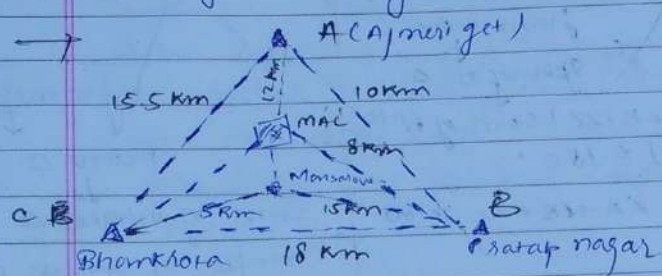 A (Ajmeri get)
15.5 Km
12 Km
10 Km
MAC
8 Km
Mansarovar
5 Km
15 Km
C B
B
Bhamkrota
18 Km
Pratap nagar